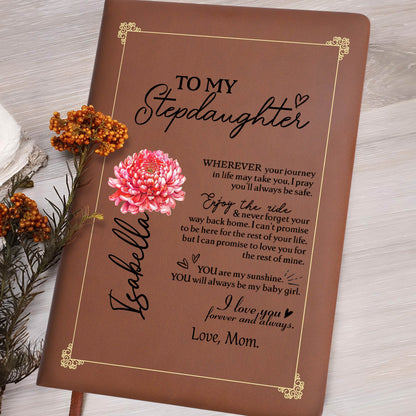 TO MY
Stepdaughter
WHEREVER your journey
in life may take you, I pray
you'll always be safe.
Enjoy the ride
& never forget your
way back home. I can't promise
to be here for the rest of your life,
but I can promise to love you for
the rest of mine.
YOU are my sunshine.
YOU will always be my baby girl.
I love you
forever and always.
Love, Mom.
Isabella